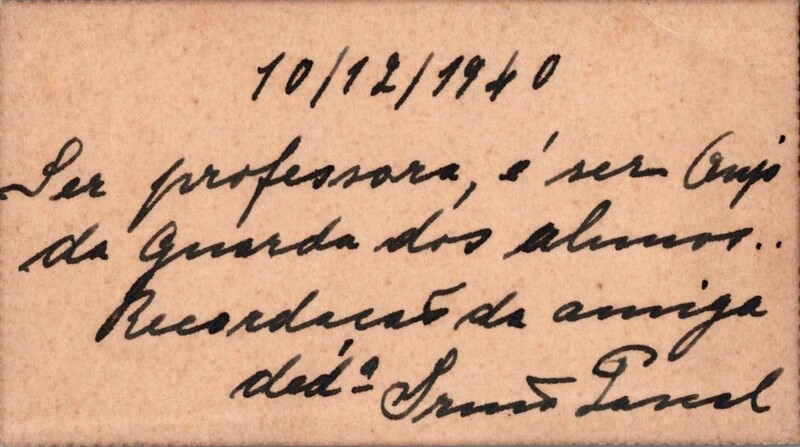 10/12/1940
Ser professora, é ser Anjo
da Guarda dos alunos..
Recordacão da amiga
dedª Irmã Pascal